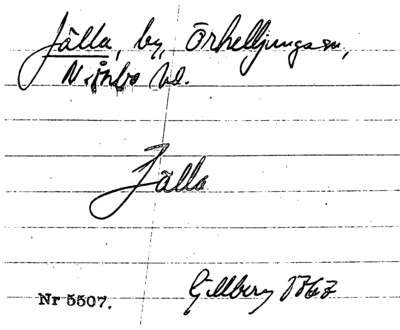 Jälla, by, Örkelljunga sn,
N. Åsbo hd.
Jälla
Gillberg 1767
Nr 5507.